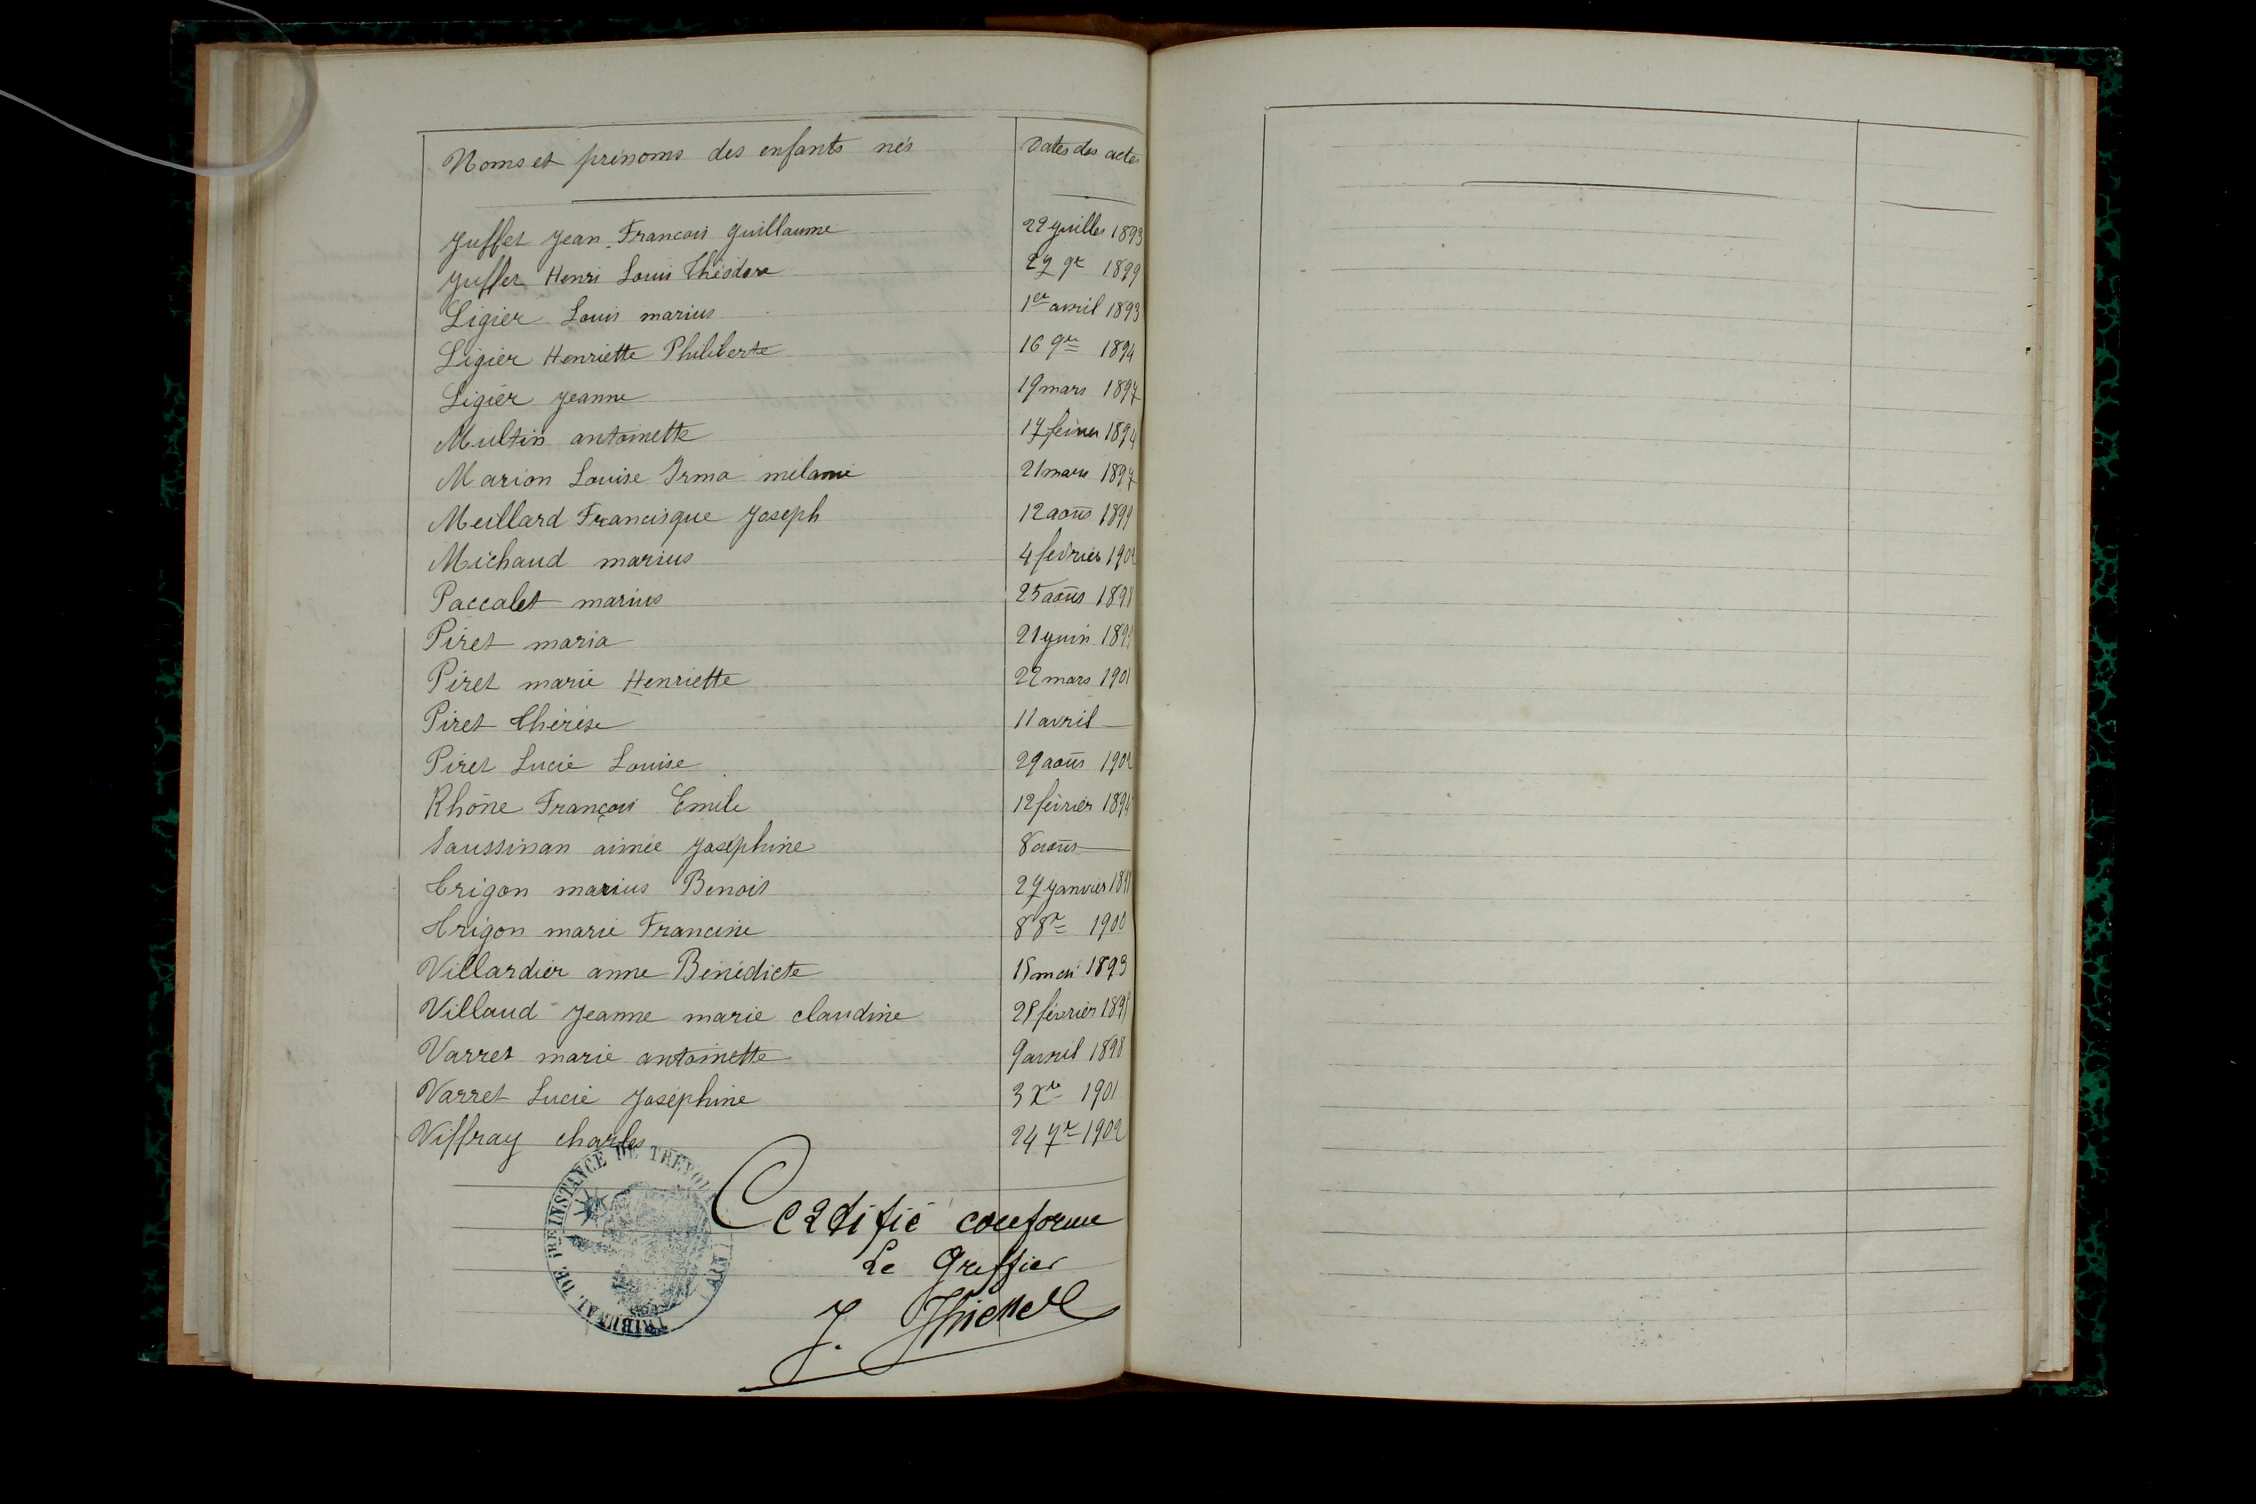 Noms et prénoms des enfants nés Dates des actes
Juffet Jean François Guillaume 22 Juillet 1893
Juffet Henri Louis Théodore 27 9re 1899
Ligier Louis marius 1er avril 1893
Ligier Henriette Philiberte 16 9re 1894
Ligier Jeanne 19 mars 1897
Multin antoinette 17 février 1894
Marion Louise Irma mélanie 21 mars 1897
Meillard Francisque Joseph 12 août 1899
Michaud marius 4 février 1902
Paccalet marius 25 août 1898
Piret maria 21 juin 1899
Piret marie Henriette 22 mars 1901
Piret Thérèse 11 avril
Piret Lucie Louise 29 août 1902
Rhône François Emile 12 février 1894
Saussinan aimée Joséphine 8 août
Trigon marius Benoit 27 Janvier 1898
Trigon marie Francine 8 8re 1900
Villardier anne Bénédicte 15 mai 1893
Villaud Jeanne marie claudine 28 février 1898
Varret marie antoinette 9 avril 1898
Varret Lucie Joséphine 3 Xre 1901
Viffray charles 24 7re 1902
Certifié conforme
Le Greffier
J.
TRIBUNAL DE 1RE INSTANCE DE TREVOUX